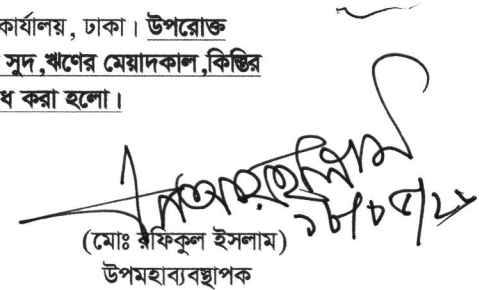 কার্যালয়, ঢাকা। উপরোক্ত
সুদ,ঋণের মেয়াদকাল,কিস্তির
ধ করা হলো।
(মোঃ রফিকুল ইসলাম)
উপমহাব্যবস্থাপক